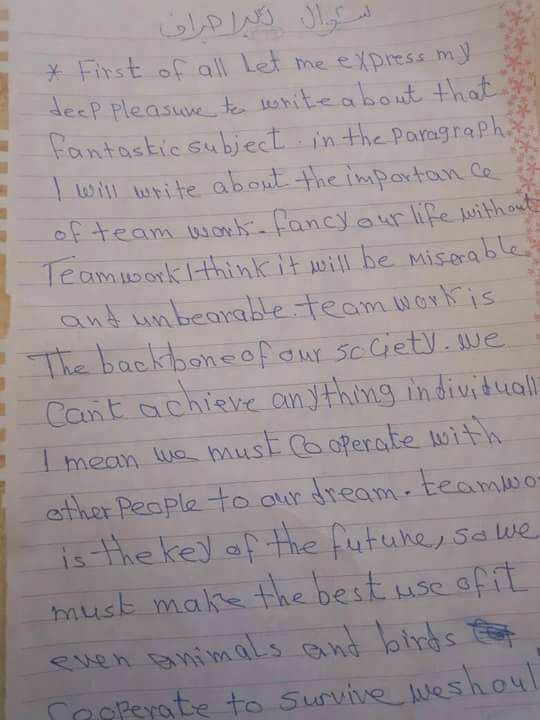 سؤال البراجراف
* First of all Let me express my
deep pleasure to write about that
fantastic subject. in the paragraph
I will write about the importance
of team work. fancy our life without
Teamwork I think it will be miserable
and unbearable. teamwork is
The backbone of our society. we
Can't achieve anything individuall
I mean we must Cooperate with
other people to our dream. teamwo
is the key of the future, so we
must make the best use of it
even animals and birds
Cooperate to survive we shoul